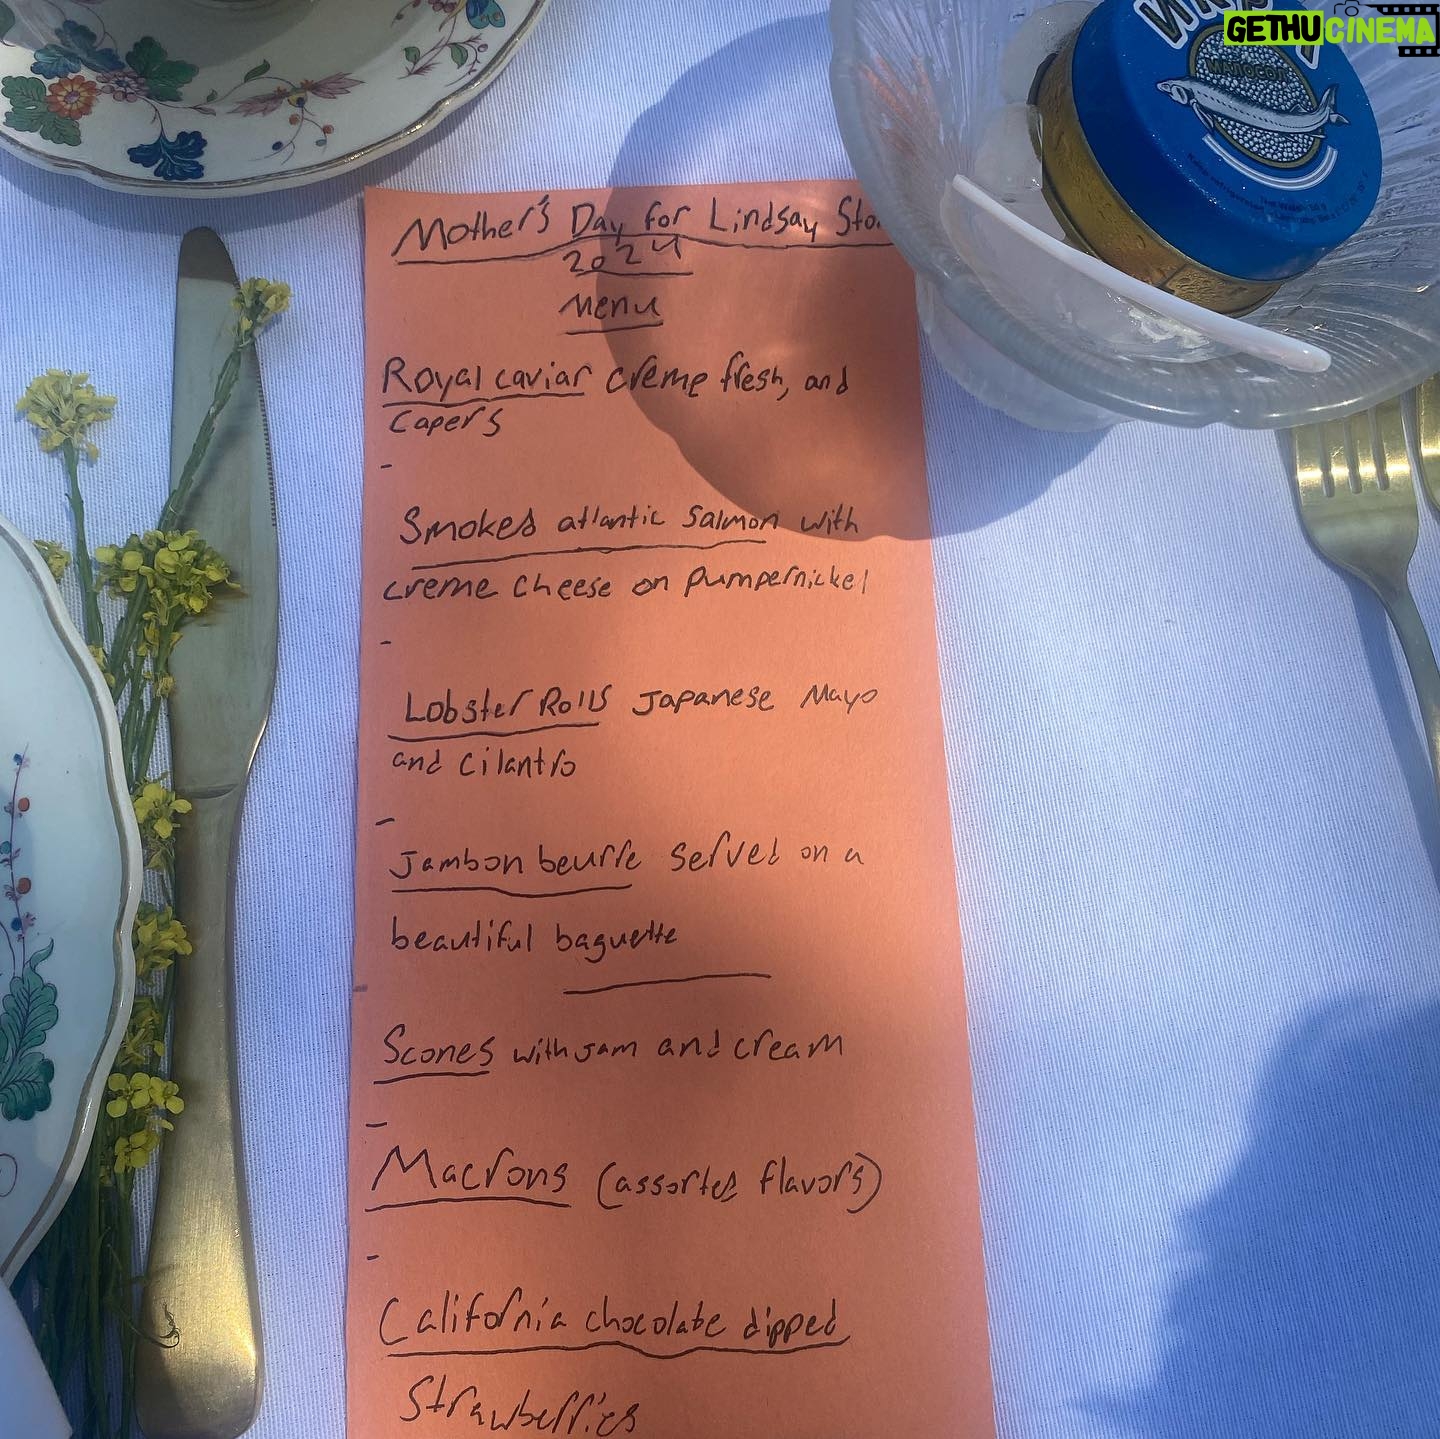 GETHUCINEMA
Mother's Day for Lindsay
2024
Menu
Royal caviar creme fresh, and
capers
-
Smoked atlantic salmon with
creme cheese on pumpernickel
-
Lobster Rolls Japanese Mayo
and cilantro
-
Jambon beurre served on a
beautiful baguette
Scones with jam and cream
-
Macrons (assorted flavors)
-
California chocolate dipped
Strawberries